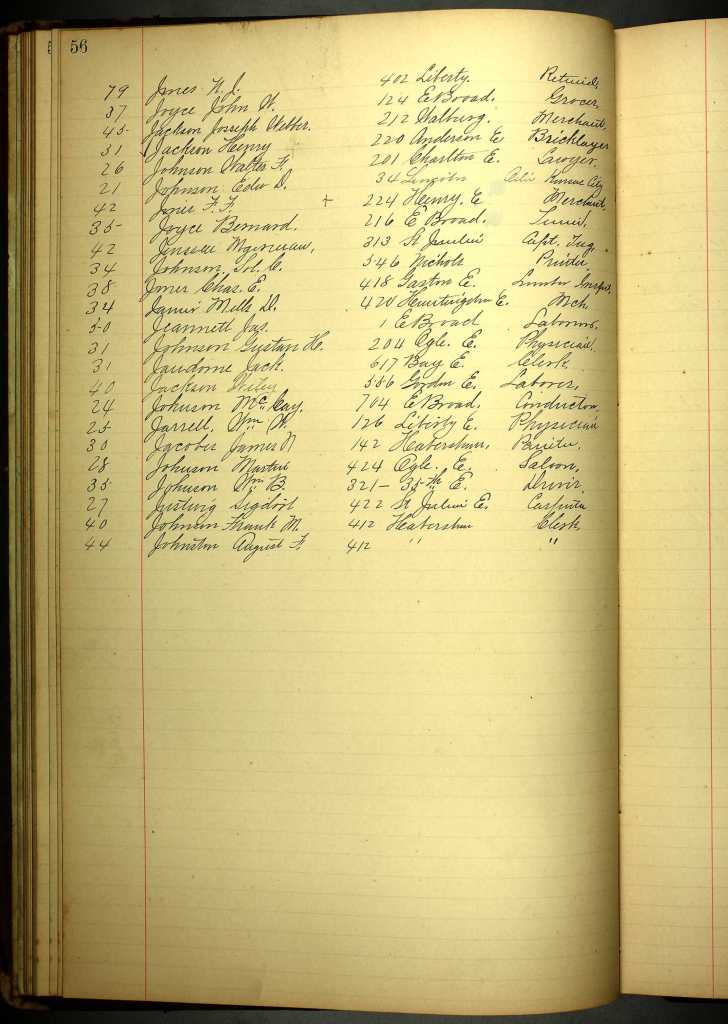 56
79 Jones H. J. 402 Liberty. Retired,
37 Joyce John W. 124 E Broad. Grocer,
45 Jackson Joseph Webber. 212 Walburg. Merchant,
31 Jackson Henry 220 Anderson E Bricklayer
26 Johnson Walter F. 201 Charlton E. Lawyer.
21 Johnson Edw D. 34 Lincoln Kansas City
42 Jones F. F. + 224 Henry. E Merchant,
35 Joyce Bernard. 216 E Broad.
42 313 St Julian Capt. Tug.
34 Johnson, Sol. C. 546 Nichols Printer.
38 Jones Chas. E. 418 Gaston E. Lumber Inspct.
34 Mills D. 420 Huntingdon E. Mch.
50 Jeannett Jas. 1 E Broad Laborer.
31 Johnson Gustav H. 204 Ogle. E. Physician.
31 Jaudome Jack. 617 Bay E. Clerk
40 Jackson Wiley 556 Gordon E. Laborer,
24 Johnson McCay. 704 E Broad. Conductor,
25 Jarrell, Wm W. 126 Liberty E. Physician
30 Jacobs James N 142 Habersham.
28 Johnson Martin 424 Ogle. E. Saloon.
35 Johnson Wm B. 321 - 35th E. Driver.
27 422 St Julian E. Carpenter
40 Johnson Frank M. 412 Habersham Clerk
44 Johnston August F. 412 " "